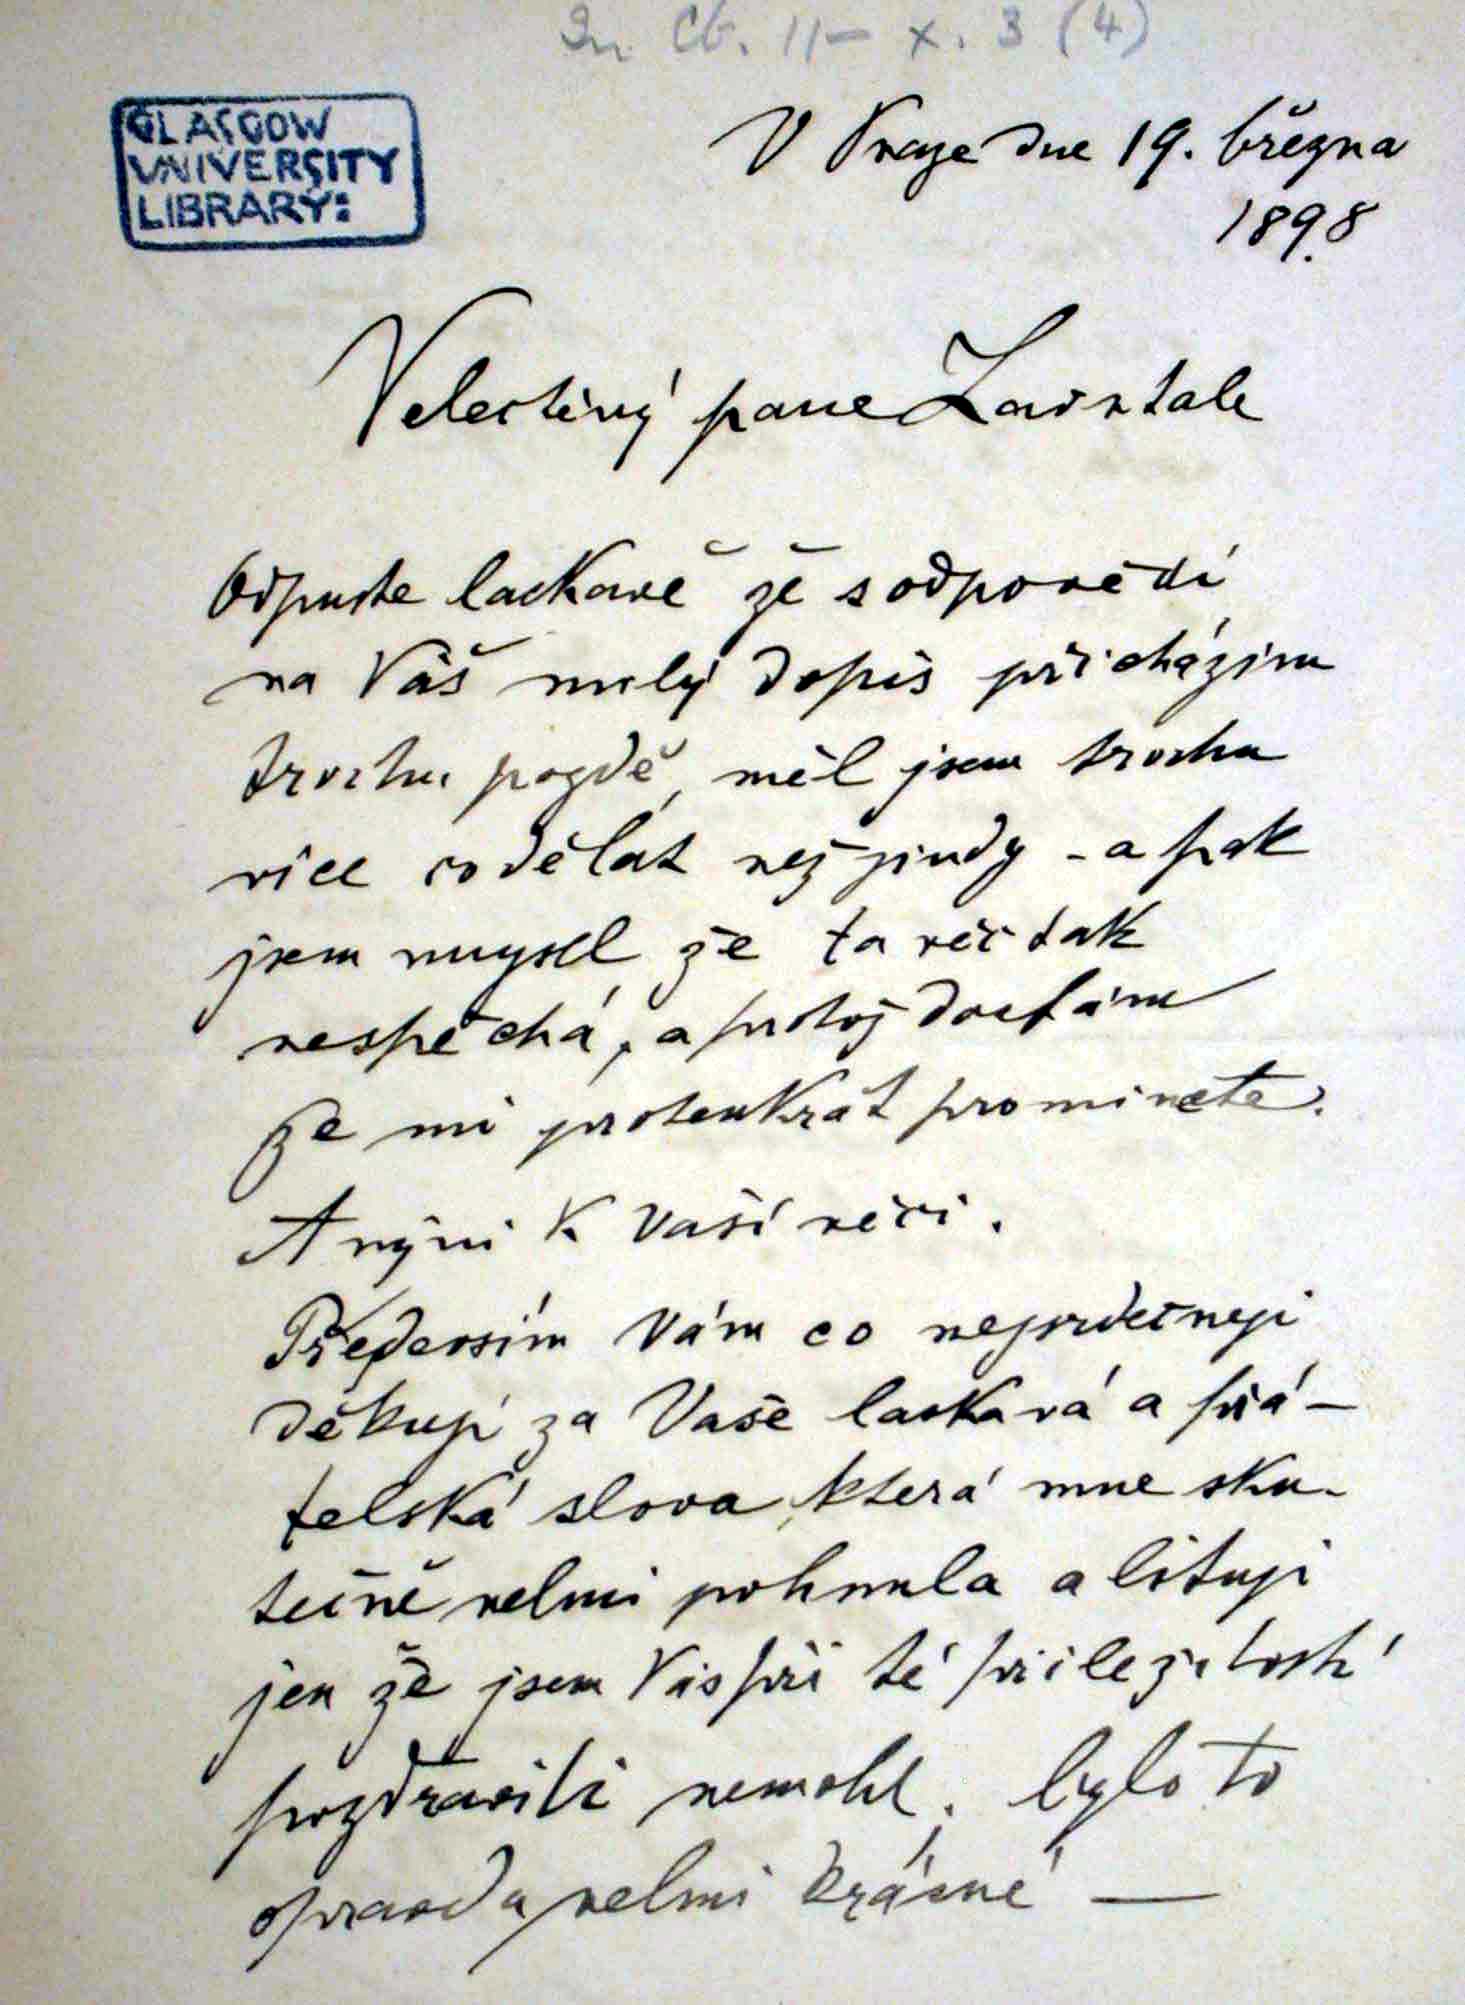 In Cb. 11 - x. 3 (4)
GLASGOW
UNIVERSITY
LIBRARY:
V Praze dne 19. března
1898.
Velectěný pane
Odpusťe laskavě že s odpovědí
na Váš milý dopis přicházim
trochu pozdě, měl jsem trochu
více co dělat než jindy - a pak
jsem myslel že ta věc tak
nespěchá, a protož doufám
že mi protenkrát prominete.
A nýni k Vaší věci.
Předevsím Vám co nejsrdečneji
děkuji za Vaše laskavá a přá-
telská slova která mne sku-
tečně velmi pohnula a lituji
jen že jsem Vás při té přiležitosti
pozdraviti nemohl. bylo to
opravdu velmi krásné —